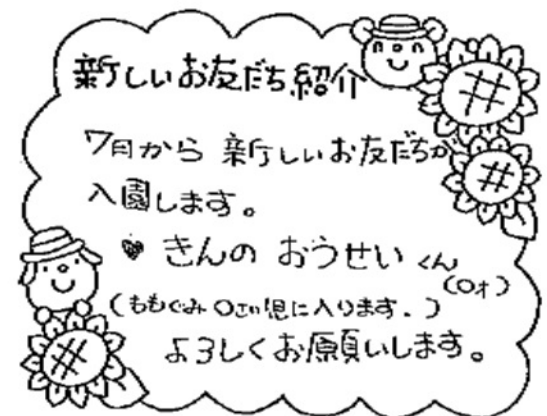 新しいお友だち紹介
7月から 新しいお友だちが
入園します。
♥ きんの おうせい くん
(0才)
(ももぐみ0さい児に入ります.)
よろしくお願いします。